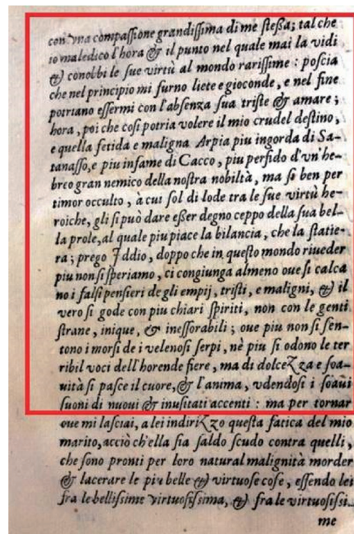 con vna compaſſione grandiſſima di me ſteſſa; tal che
io maledico l'hora & il punto nel quale mai la vidi
& conobbi le ſue virtù al mondo rariſſime : poſcia
che nel principio mi furno liete e gioconde, e nel fine
potriano eſſermi con l'abſenza ſua triſte & amare ;
hora, poi che coſi potria volere il mio crudel deſtino,
e quella fetida e maligna Arpia piu ingorda di Sa-
tanaſſo, e piu infame di Cacco, piu perfido d'vn he-
breo gran nemico della noſtra nobiltà, ma ſi ben per
timor occulto, a cui ſol di lode tra le ſue virtù he-
roiche, gli ſi può dare eſſer degno ceppo della ſua bel-
la prole, al quale piu piace la bilancia, che la ſtatie-
ra ; prego Iddio, doppo che in queſto mondo riueder
piu non ſi ſperiamo, ci congiunga almeno oue ſi calca
no i falſi penſieri de gli empij, triſti, e maligni, & il
vero ſi gode con piu chiari ſpiriti, non con le genti
ſtrane, inique, & ineſſorabili ; oue piu non ſi ſen-
tono i morſi de i velenoſi ſerpi, nè piu ſi odono le ter
ribil voci dell'horende fiere, ma di dolcezza e ſoa-
uità ſi paſce il cuore, & l'anima, vdendoſi i ſoaui
ſuoni di nuoui & inuſitati accenti : ma per tornar
oue mi laſciai, a lei indirizzo queſta fatica del mio
marito, acciò ch'ella ſia ſaldo ſcudo contra quelli,
che ſono pronti per loro natural malignità morder
& lacerare le piu belle & virtuoſe coſe, eſſendo lei
fra le belliſſime virtuoſiſſima, & fra le virtuoſiſſi-
me